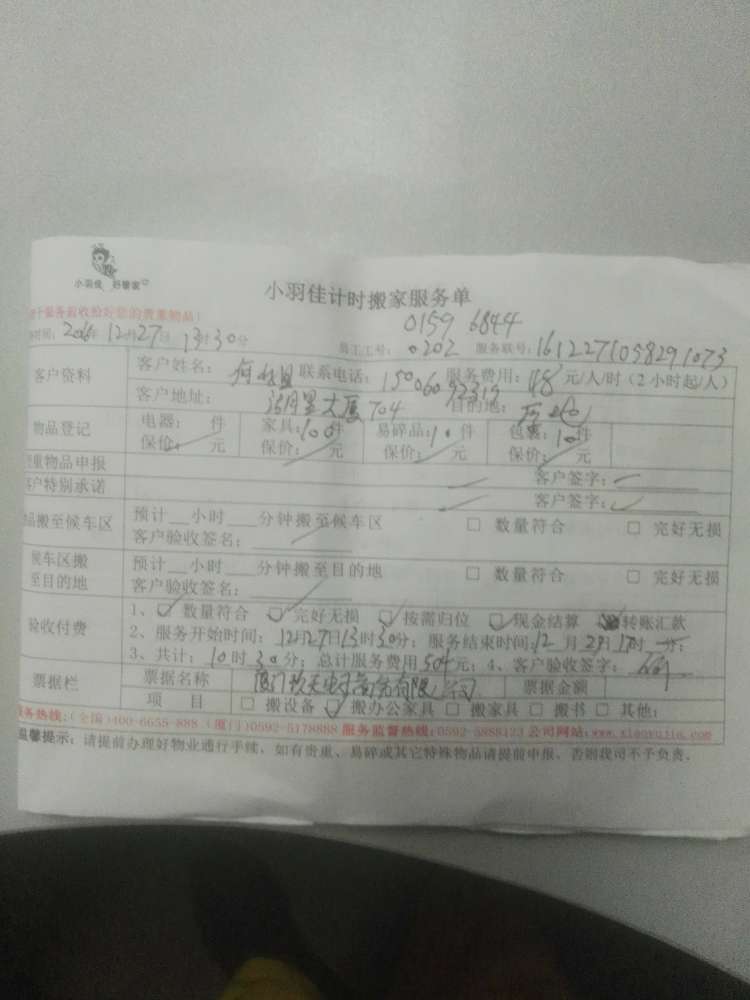 小羽佳 好管家
小羽佳计时搬家服务单
服务前请收拾好您的贵重物品!
时间: 2016年12月27日 13时30分
0159 6844
员工工号: 0202 服务联号: 161227105829 1073
客户资料
客户姓名: 联系电话: 服务费用: 48元/人/时(2小时起/人)
客户地址: 大厦704 目的地:
物品登记
电器: 件 家具: 100件 易碎品: 10件 包裹: 10件
保价: 元 保价: 元 保价: 元 保价: 元
贵重物品申报 客户签字:
客户特别承诺 客户签字:
物品搬至候车区
预计__小时__分钟搬至候车区 □ 数量符合 □ 完好无损
客户验收签名:
候车区搬至目的地
预计__小时__分钟搬至目的地 □ 数量符合 □ 完好无损
客户验收签名:
验收付费
1、☑ 数量符合 ☑ 完好无损 ☑ 按需归位 ☑ 现金结算 转账汇款
2、服务开始时间: 12月27日13时30分; 服务结束时间: 12月27日17时 分;
3、共计: 10时30分; 总计服务费用504元; 4、客户验收签字:
票据栏
票据名称 厦门 电子商务有限公司 票据金额
项 目 □ 搬设备 ☑ 搬办公家具 □ 搬家具 □ 搬书 □ 其他:
服务热线:(全国)400-6655-888 (厦门)0592-5178888 服务监督热线:0592-5888123 公司网站:www.xiaoyujia.com
温馨提示: 请提前办理好物业通行手续, 如有贵重、易碎或其它特殊物品请提前申报, 否则我司不予负责。